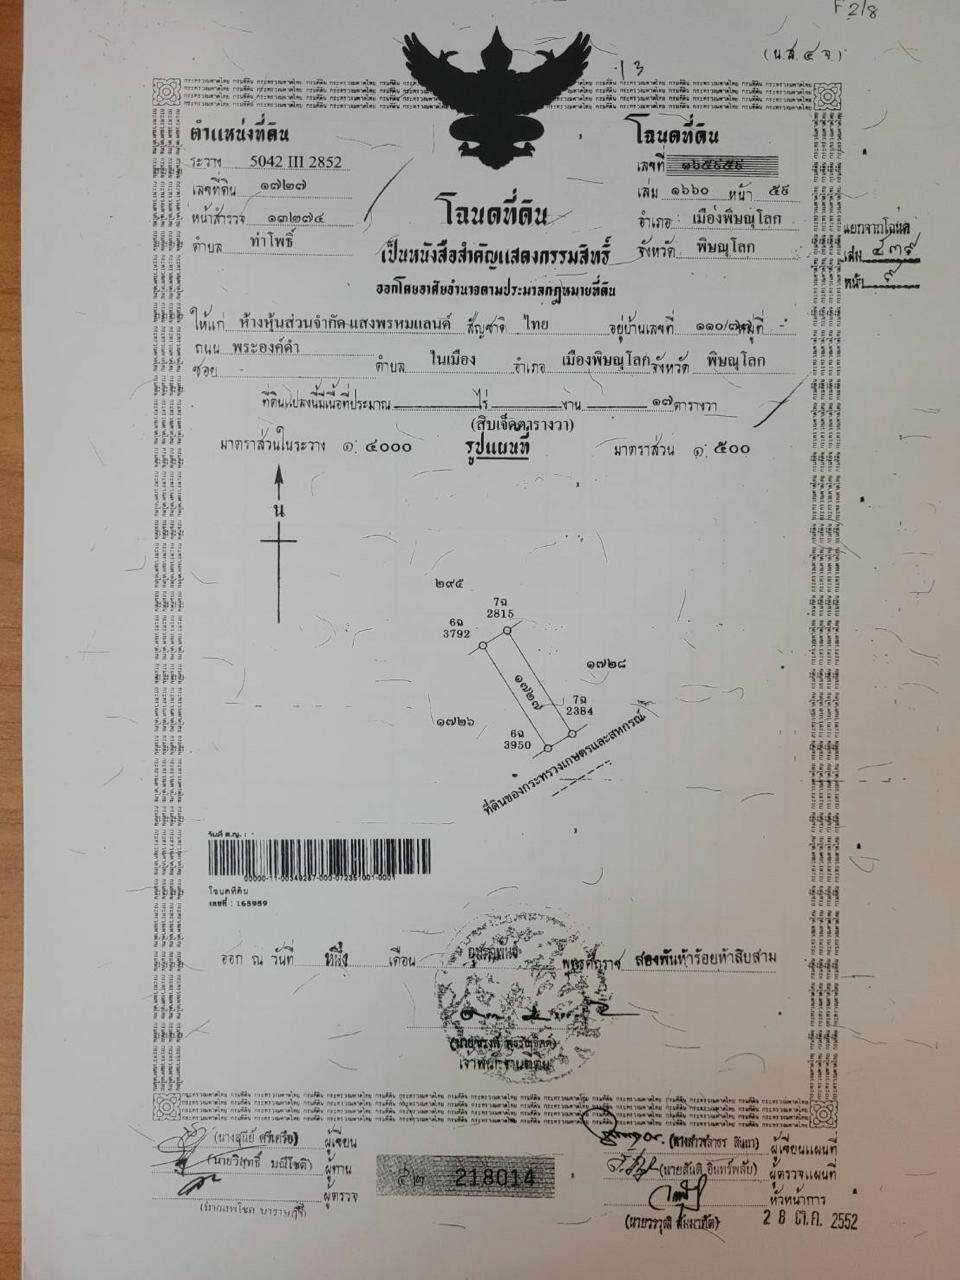 F 2/8
(น.ส.๔ จ.)
13
ตำแหน่งที่ดิน
ระวาง 5042 III 2852
เลขที่ดิน ๑๗๒๗
หน้าสำรวจ ๑๓๒๗๔
ตำบล ท่าโพธิ์
โฉนดที่ดิน
เลขที่ ๑๖๕๙๕๙
เล่ม ๑๖๖๐ หน้า ๕๙
อำเภอ เมืองพิษณุโลก
จังหวัด พิษณุโลก
แยกจากโฉนด
เล่ม ๔๓๙
หน้า
โฉนดที่ดิน
เป็นหนังสือสำคัญแสดงกรรมสิทธิ์
ออกโดยอาศัยอำนาจตามประมวลกฎหมายที่ดิน
ให้แก่ ห้างหุ้นส่วนจำกัด แสงพรหมแลนด์ สัญชาติ ไทย อยู่บ้านเลขที่ ๑๑๐/ หมู่ที่ -
ถนน พระองค์ดำ
ซอย - ตำบล ในเมือง อำเภอ เมืองพิษณุโลก จังหวัด พิษณุโลก
ที่ดินแปลงนี้มีเนื้อที่ประมาณ ไร่ งาน ๑๗ ตารางวา
(สิบเจ็ดตารางวา)
มาตราส่วนในระวาง ๑: ๔๐๐๐ รูปแผนที่ มาตราส่วน ๑: ๕๐๐
น
๒๙๕
7ฉ
2815
6ฉ
3792
๑๗๒๘
๑๗๒๗
7ฉ
2384
๑๗๒๖
6ฉ
3950
ที่ดินของกระทรวงเกษตรและสหกรณ์
วันที่ ส.ญ. : -
00000-11-00349267-000-072351001-0001
โฉนดที่ดิน
เลขที่ : 165959
ออก ณ วันที่ หนึ่ง เดือน พุทธศักราช สองพันห้าร้อยห้าสิบสาม
เจ้าพนักงานที่ดิน
ผู้เขียน
ผู้ทาน
ผู้ตรวจ
218014
ผู้เขียนแผนที่
(นายสันติ อินทร์พลับ) ผู้ตรวจแผนที่
หัวหน้าการ
28 ต.ค. 2552